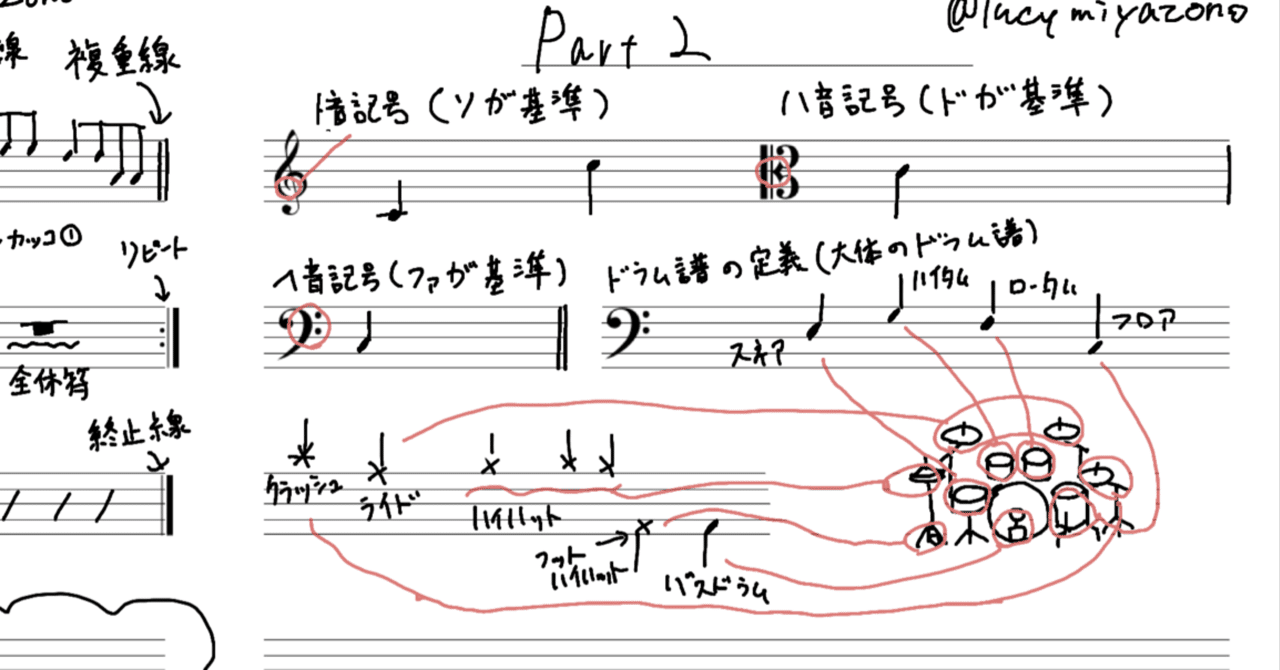 @lucymiyazono
Part 2
線 複重線
ト音記号(ソが基準)
ハ音記号(ドが基準)
カッコ①
リピート
ヘ音記号(ファが基準)
ドラム譜の定義(大体のドラム譜)
スネア
ハイタム
ロータム
フロア
全休符
終止線
クラッシュ
ライド
ハイハット
フット
ハイハット
バスドラム